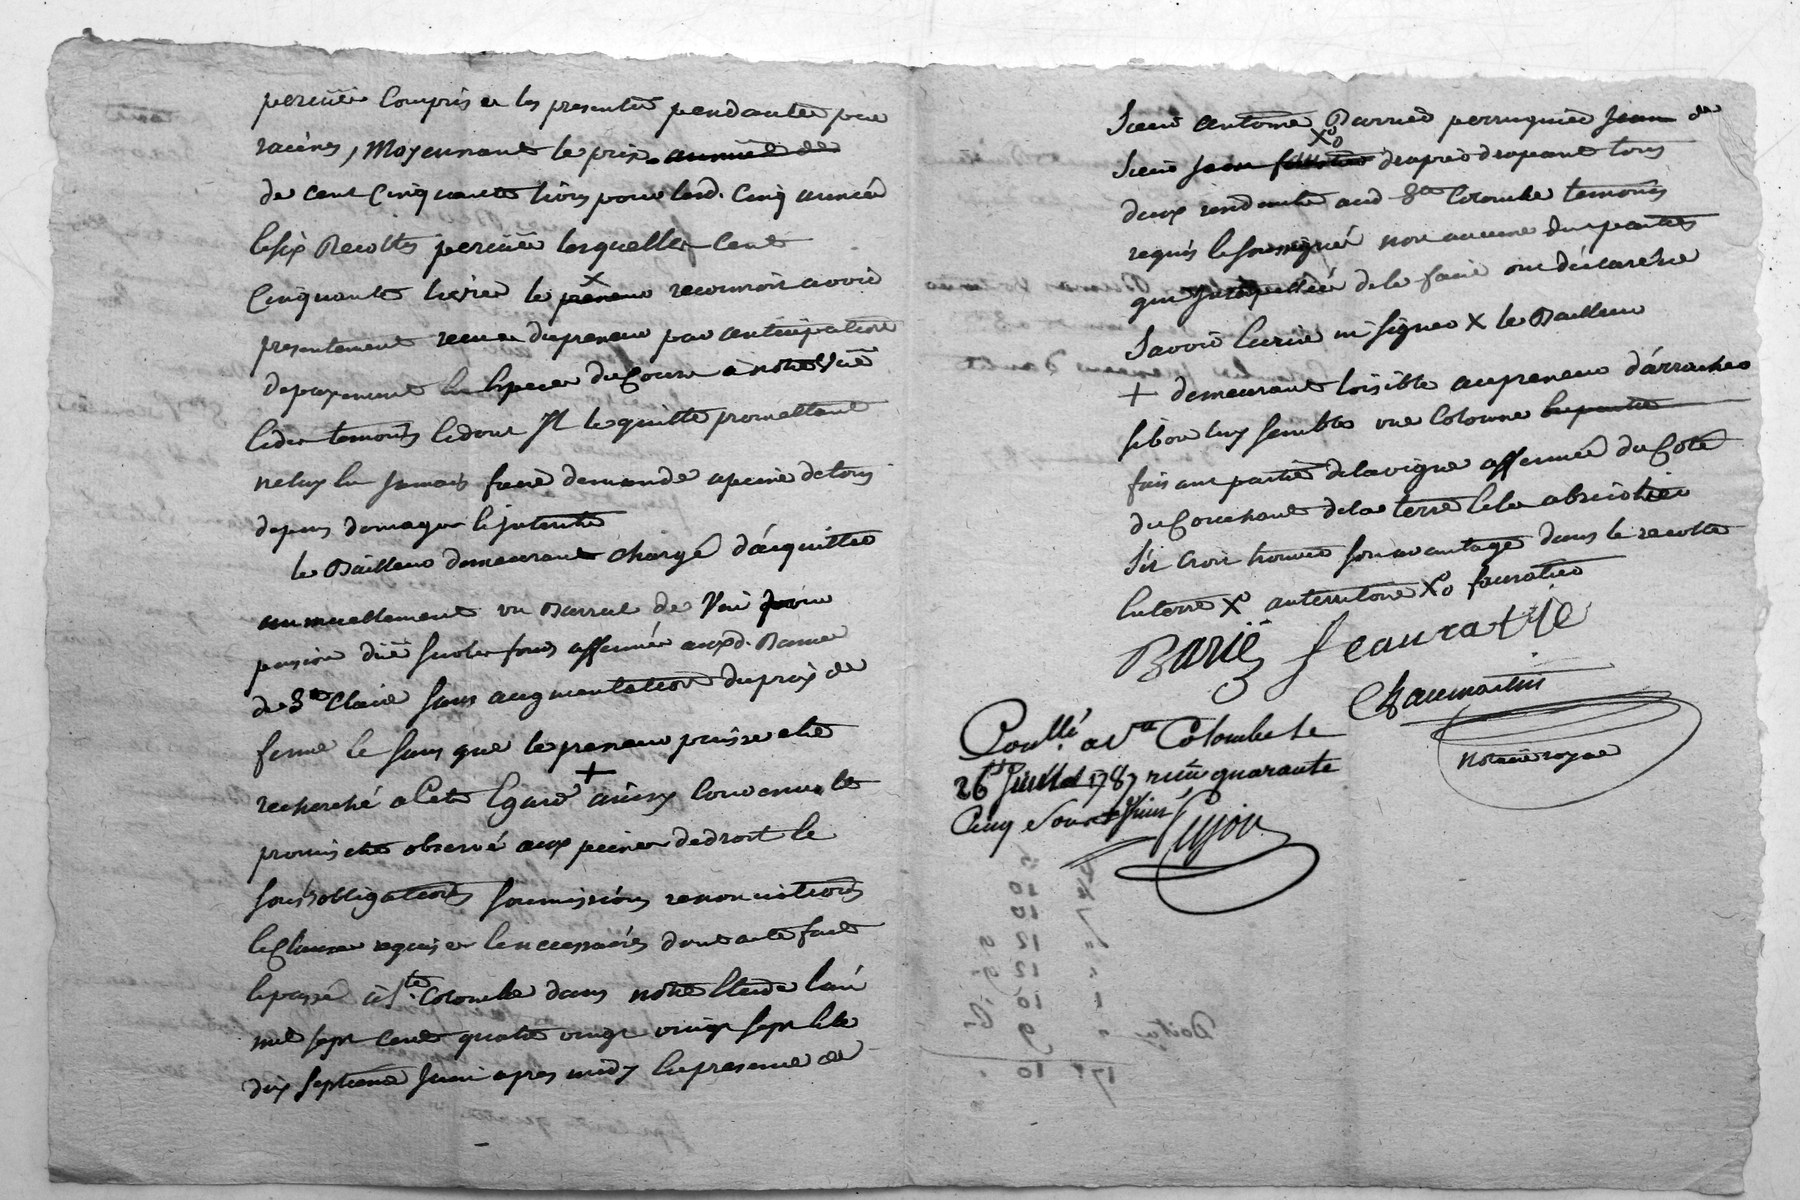 perçüe Compris et les presentes pendantes par
racines, Moyennant le prix année de
de cent Cinquante livres pour lesd. Cinq années
et six Recoltes perçüe lesquelles cent
Cinquante livres le preneur reconnoit avoir
presentement reçu du preneur par anticipation
de payement en Espece du Cours à notre Vüe
et des temoins et dont Il le quitte promettant
ne luy en jamais faire demande apeine de tous
depens domages et interets
le Bailleur demeurant chargé d'acquitter
annuellement un Barral de Vin
pension düe sur les fonds affermés aux d. Dames
de Ste Claire sans augmentation du prix de
ferme et sans que le preneur puisse etre
recherché a Cet Egard + ainsy convenu et
promis etre observé aux peines de droit et
sous obligations soumissions renonciations
et Clauses requises et necessaires dont acte fait
et passé à Ste Colombe dans notre Etude l'an
mil sept cent quatre vingt sept et le
dix septieme Juin apres midy en presence de
Sieur antoine Barrier perruquier Jean et
Sieur Jean Xo drapant tous
deux residents aud Ste Colombe temoins
requis et soussignés non aucune des parties
qui de ce faire ont déclaré ne
Savoir Ecrire ni signer X le Bailleur
+ demeurant loisible au preneur d'arracher
si bon luy semble une Colonne
faisant partie de la vigne affermée du Coté
du Couchant de la terre
s'il croit trouver son avantage dans la recolte
en terre X Xo
Barié Jeauratié
Chaumartin
Notaire royal
Conllé a Ste Colombe le
26 Juillet 1787 reçu quarante
Cinq Sous
Gujon